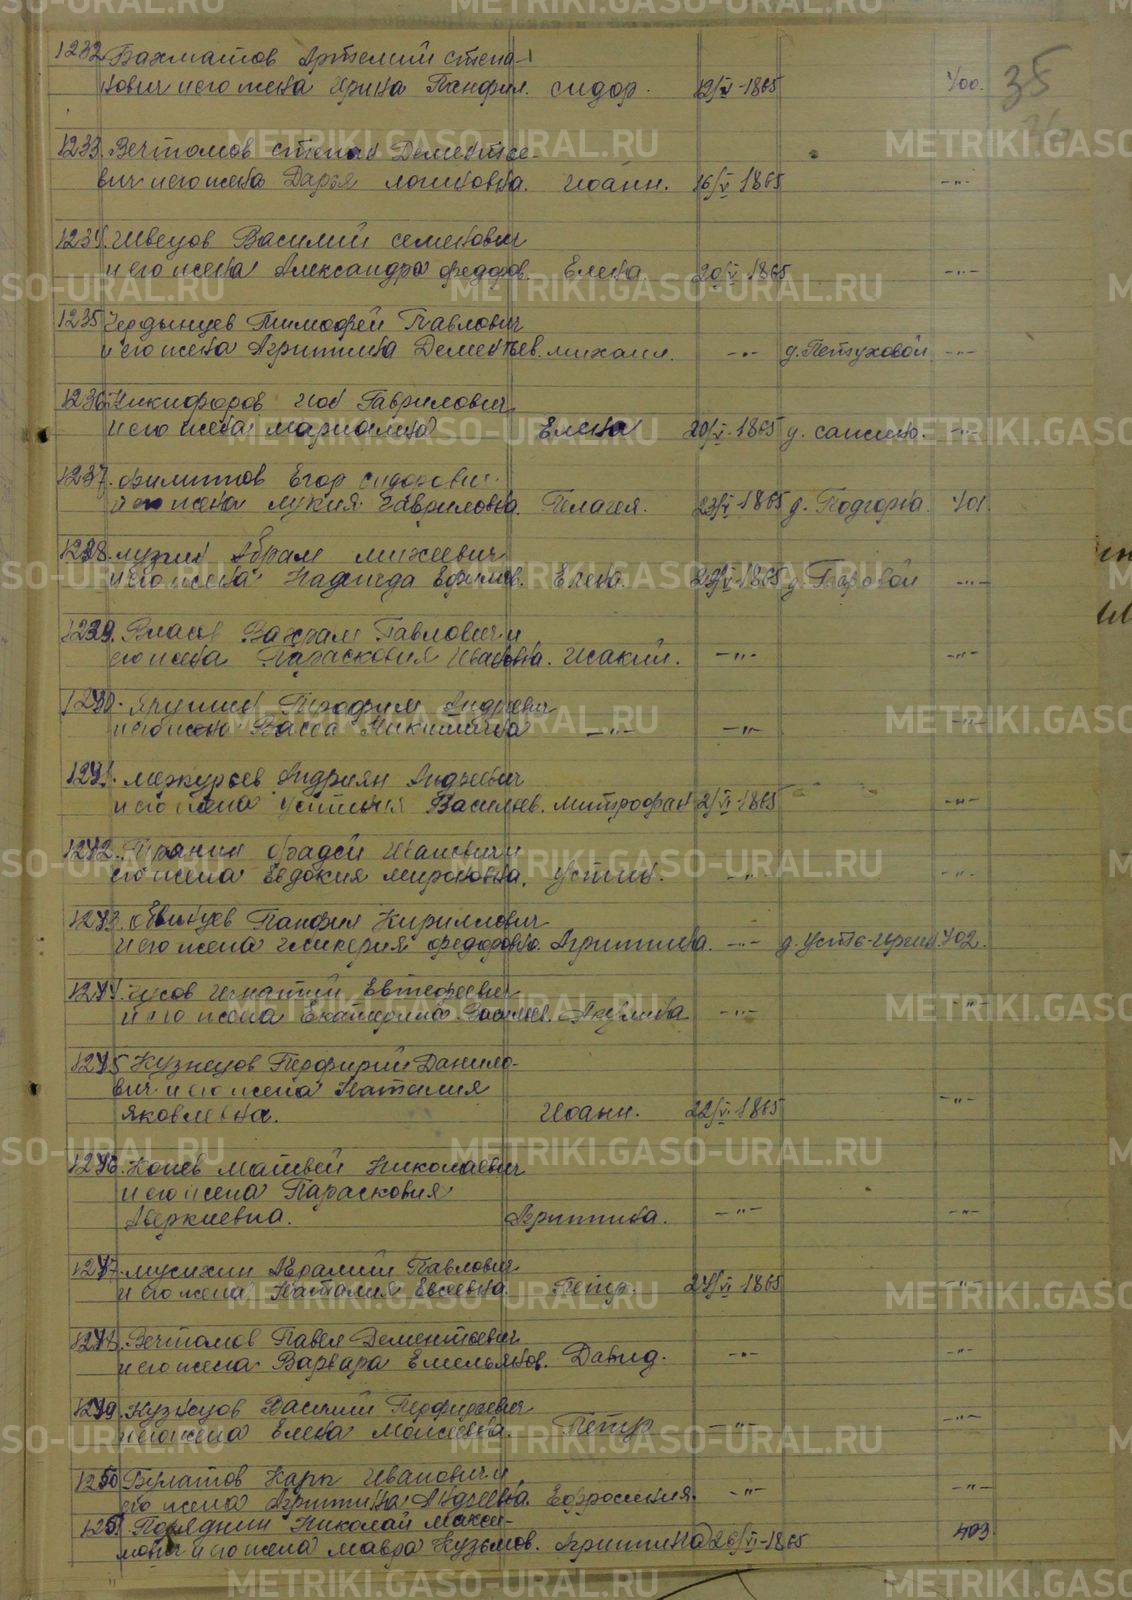 35
1232 Бахматов Артемий Степа-
нович и его жена Ирина Панфил. Сидор. 12/V-1865 400.
1233. Вечтомов Степан Дементье-
вич и его жена Дарья Логиновна. Иоанн. 16/V 1865 -"-
1234. Швецов Василий Семенович
и его жена Александра Федоров. Елена 20/V 1865 -"-
1235 Чердынцев Тимофей Павлович
и его жена Агриппина Дементьев. Михаил. -"- д. Петуховой -"-
1236. Никифоров Иов Гаврилович
и его жена Елена 20/V-1865 -"-
1237. Филиппов Егор Сидорович
и его жена Лукия Гавриловна. Пелагея. д. Подгорна. 401
1238. Лузин Абрам Михеевич
и его жена Надежда Ефимов. Елена. д. Боровой -"-
1239. Власов Вахрам Павлович и
его жена Парасковия Ивановна. Исакий. -"- -"-
1240. Трофим Андреевич
и его жена Васса Никитична -"- -"- -"-
1241. Меркурьев Андриян Андреевич
и его жена Устинья Васильев. Митрофан 2/VI-1865 -"-
1242. Фадей Иванович и
его жена Евдокия Мироновна. Устин. -"- -"-
1243. Обвинцев Панфил Кириллович
и его жена Гликерия Федоровна. Агриппина. -"- д. Усть-Иргин. 402.
1244. Чусов Игнатий Евтефеевич
и его жена Екатерина Васильев. Акулина -"- -"-
1245 Кузнецов Перфирий Данило-
вич и его жена Наталия
Яковлевна. Иоанн. 22/VI-1865 -"-
1246. Копев Матвей Николаевич
и его жена Парасковия
Аверкиевна. Агриппина. -"- -"-
1247. Мусихин Авралий Павлович
и его жена Наталия Евсеевна. Петр. 24/VI-1865 -"-
1248. Вечтомов Павел Дементьевич
и его жена Варвара Емельянов. Давид. -"- -"-
1249. Кузнецов Василий Перфирьевич
и его жена Елена Моисеевна. Петр -"- -"-
1250 Булатов Карп Иванович и
его жена Агриппина Андреевна. Ефросиния. -"- -"-
1251. Николай Макси-
мович и его жена Мавра Кузьмов. Агриппина 26/VI-1865 403